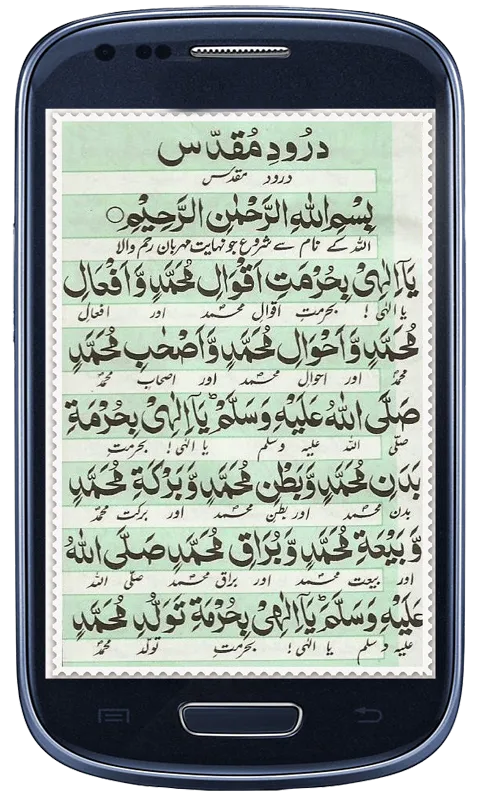 درُودِ مُقدّس
درود مقدس
بِسْمِ اللهِ الرَّحْمٰنِ الرَّحِيْمِ○
اللہ کے نام سے شروع جو نہایت مہربان رحم والا
يَآ اِلٰهِىْ بِحُرْمَتِ اَقْوَالِ مُحَمَّدٍ وَّاَفْعَالِ
یا الٰہی ! بحرمتِ اقوالِ محمد اور افعال
مُحَمَّدٍ وَّاَحْوَالِ مُحَمَّدٍ وَّاَصْحٰبِ مُحَمَّدٍ
محمدؐ اور احوال محمد اور اصحاب محمدؐ
صَلَّى اللهُ عَلَيْهِ وَسَلَّمَ ؕ يَآ اِلٰهِىْ بِحُرْمَةِ
صلی اللہ علیہ وسلم یا الٰہی ! بحرمتِ
بَدَنِ مُحَمَّدٍ وَّبَطْنِ مُحَمَّدٍ وَّبَرْكَةِ مُحَمَّدٍ
بدن محمد اور بطن محمد اور برکت محمدؐ
وَّبَيْعَةِ مُحَمَّدٍ وَّبُرَاقِ مُحَمَّدٍ صَلَّى اللهُ
اور بیعت محمد اور براق محمد صلی اللہ
عَلَيْهِ وَسَلَّمَ ؕ يَآ اِلٰهِىْ بِحُرْمَةِ تَوَلُّدِ مُحَمَّدٍ
علیہ وسلم یا الٰہی ! بحرمتِ تولد محمدؐ